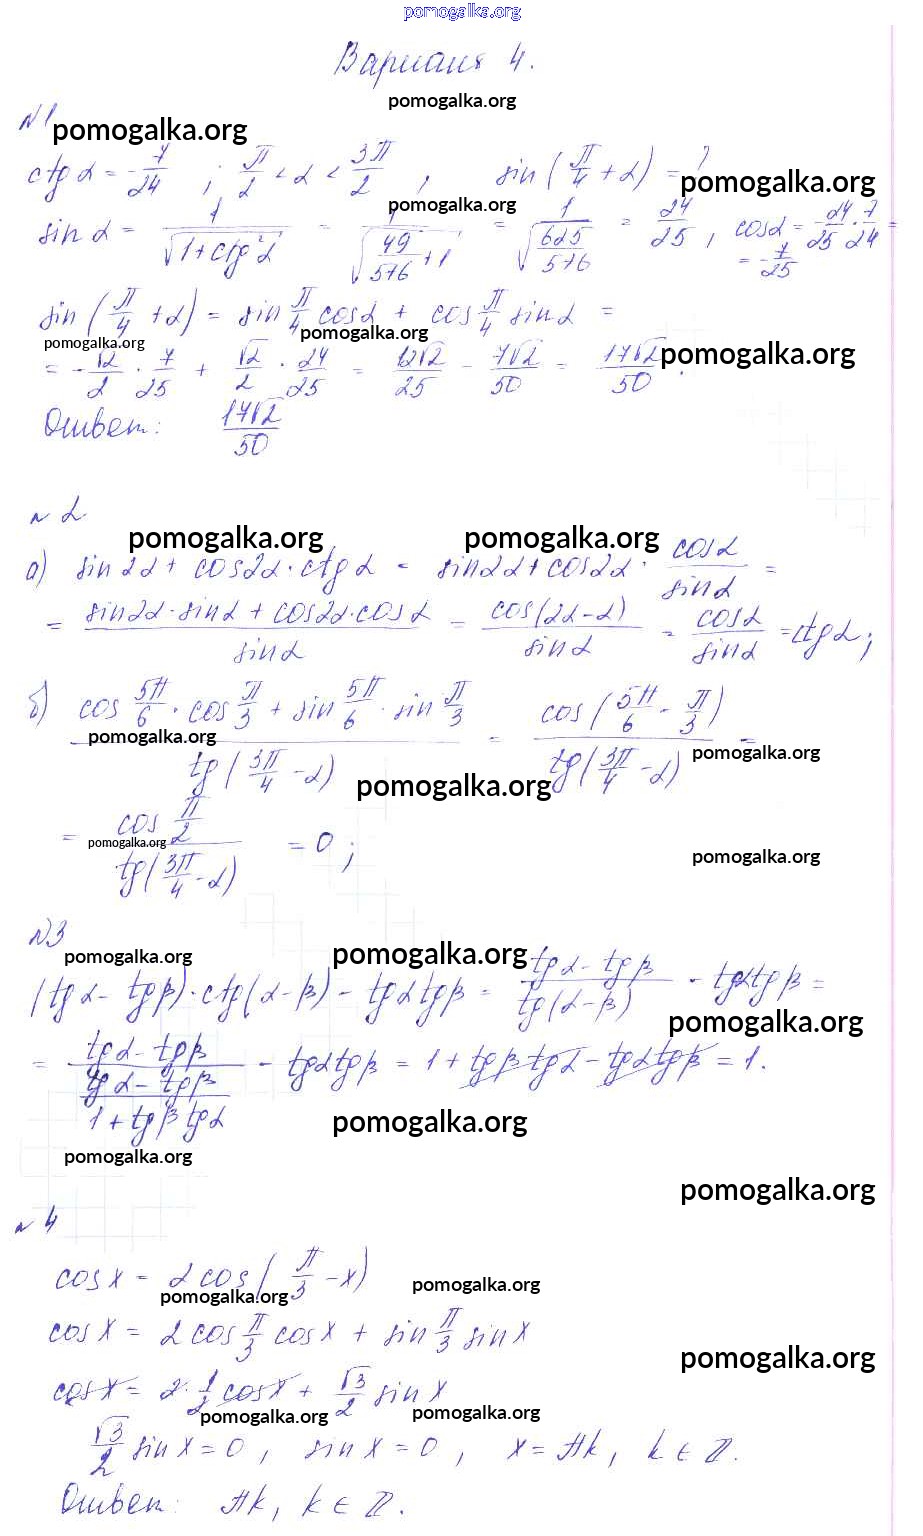 pomogalka.org
Вариант 4.
pomogalka.org
№1 pomogalka.org
ctg α = -7/24 ; π/2 < α < 3π/2 , sin(π/4 + α) = ? pomogalka.org
pomogalka.org
sin α = 1/√(1+ctg²α) = 1/√(49/576 + 1) = 1/√(625/576) = 24/25 , cosα = -24/25 · 7/24 =
= -7/25
sin(π/4 + α) = sin π/4 cosα + cos π/4 sinα =
pomogalka.org pomogalka.org
= -√2/2 · 7/25 + √2/2 · 24/25 = 12√2/25 - 7√2/50 = 17√2/50 . pomogalka.org
Ответ: 17√2/50
№2
pomogalka.org pomogalka.org
а) sin2α + cos2α · ctg α = sin2α + cos2α · cosα/sinα =
= (sin2α · sinα + cos2α · cosα)/sinα = cos(2α-α)/sinα = cosα/sinα = ctg α;
б) (cos 5π/6 · cos π/3 + sin 5π/6 · sin π/3)/tg(3π/4 - α) = cos(5π/6 - π/3)/tg(3π/4 - α) =
pomogalka.org pomogalka.org
pomogalka.org
= cos π/2 / tg(3π/4 - α) = 0 ;
pomogalka.org pomogalka.org
№3
pomogalka.org pomogalka.org
(tg α - tg β) · ctg(α - β) - tg α tg β = (tg α - tg β)/tg(α - β) - tgα tg β =
pomogalka.org
= (tg α - tg β)/((tg α - tg β)/(1 + tg β tg α)) - tg α tg β = 1 + tg β tg α - tg α tg β = 1.
pomogalka.org
pomogalka.org
pomogalka.org
№4
cos x = 2 cos(π/3 - x)
pomogalka.org pomogalka.org
cos x = 2 cos π/3 cos x + sin π/3 sin x
pomogalka.org
cos x = 2 · 1/2 cos x + √3/2 sin x
pomogalka.org pomogalka.org
√3/2 sin x = 0 , sin x = 0 , x = πk , k ∈ Z.
Ответ: πk , k ∈ Z.